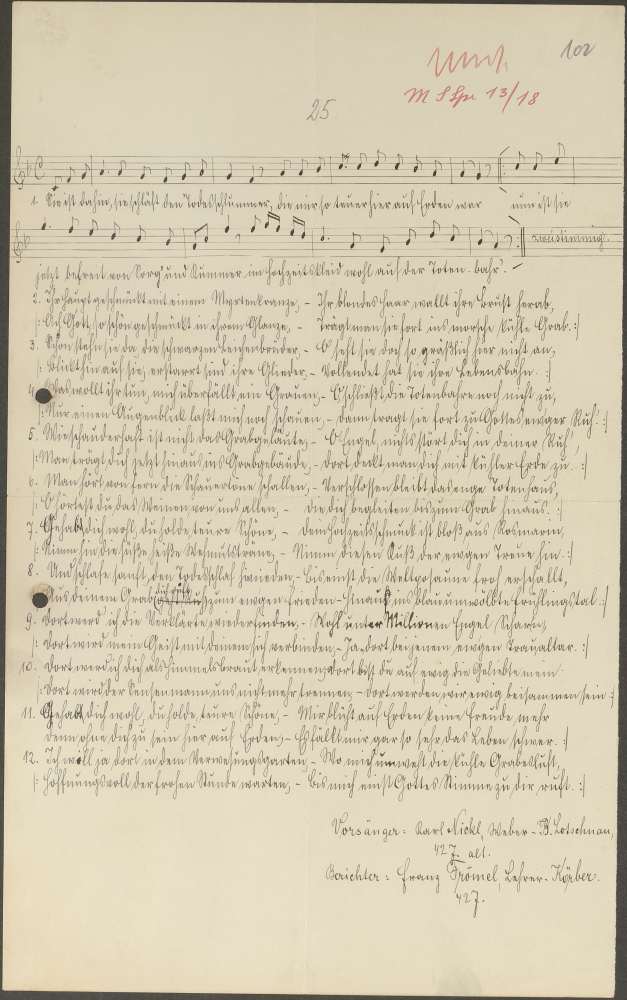 102
M S Spr 13/18
25.
1. Sie ist dahin, sie schläft den Todesschlummer, die mir so teuer hier auf Erden war nun ist sie
zweistimmig.
jetzt befreit von Sorg' und Kummer im Hochzeitskleid wohl auf der Toten-bahr'.
2. Ihr Haupt geschmückt mit einem Myrtenkranze, – Ihr blondes Haar, wallt ihre Brust herab,
|: Ach Gott, so schön geschmückt in ihrem Glanze, – Trägt man sie fort ins morsche kühle Grab. :|
3. Schon stehn sie da, die schwarzen Leichenbrüder, – O seht sie doch so gräßlich hier nicht an,
|: Blickt hin auf sie, erstarrt sind ihre Glieder, – Vollendet hat sie ihre Lebensbahn. :|
4. Was wollt ihr tun, mich überfällt ein Grauen, – O schließt die Totenbahre noch nicht zu,
|: Nur einen Augenblick laßt mich noch schauen, – dann tragt sie fort zu Gottes ewger Ruh'. :|
5. Wie schauderhaft ist nicht das Grabgeläute, – O Engel, nichts stört dich in deiner Ruh',
|: Man trägt dich jetzt hinaus ins Grabgebäude, – dort deckt man dich mit kühler Erde zu. :|
6. Man hört von fern die Schauertöne schallen, – Verschlossen bleibt das enge Totenhaus,
|: O hörtest du das Weinen von uns allen, – die dich begleiten bis zum Grab hinaus. :|
7. Gehab dich wohl, du holde teure Schöne, – dein Hochzeitsschmuck ist bloß aus Rosmarin,
|: Nimm hin die süße, heiße Wehmutsträne, – Nimm diesen Kuß der ewgen Treue hin. :|
8. Und schlafe sanft, den Todesschlaf hinieden, – Bis einst die Weltposaune froh erschallt,
|: Aus deinem Grab zum ewgen Frieden – hinauf ins blau umwölkte Frühlingstal. :|
9. Dort werd' ich die Verklärte wiederfinden, – Wohl unter Millionen Engel Scharen,
|: Dort wird mein Geist mit deinem sich verbinden, – Ja dort bei jenem ewgen Traualtar. :|
10. Dort werd ich dich als Himmelsbraut erkennen, dort bist du auf ewig die Geliebte mein.
|: Dort wird der Sensenmann, uns nicht mehr trennen, – dort werden wir ewig beisammen sein :|
11. Gehab dich wohl, du holde, teure Schöne, – Mir blüht auf Erden keine Freude mehr
denn ohne dich zu sein hier auf Erden, – Es fällt mir gar so sehr das Leben schwer. :|
12. Ich will ja dort in dem Verwesungsgarten, – Wo mich umweht die kühle Grabesluft,
|: Hoffnungsvoll der frohen Stunde warten, – bis mich einst Gottes Stimme zu dir ruft. :|
Vorsänger: Karl Nickl, Weber – B. Lotschnau,
42 J. alt.
Berichter: Franz Brömel, Lehrer – Körber.
42 J.